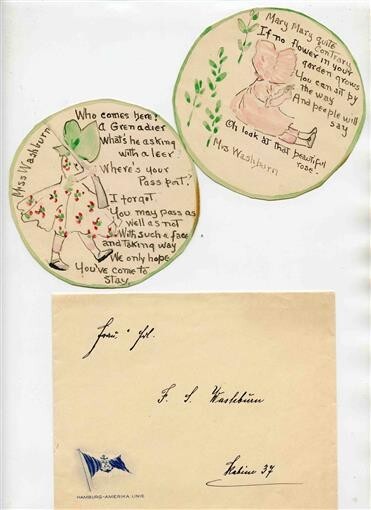 Miss Washburn
Who comes here?
A Grenadier
What's he asking
with a leer?
Where's your
Pass port?
I forgot
You may pass as
well as not
With such a face
and taking way
We only hope
You've come to
stay.
Mary Mary quite
contrary
If no flower in your
garden grows
You can sit by
the way
And people will
say
Oh look at that beautiful
rose.
Mrs Washburn
Frau. u. Frl.
F. S. Washburn
Kabine 37
HAMBURG-AMERIKA LINIE